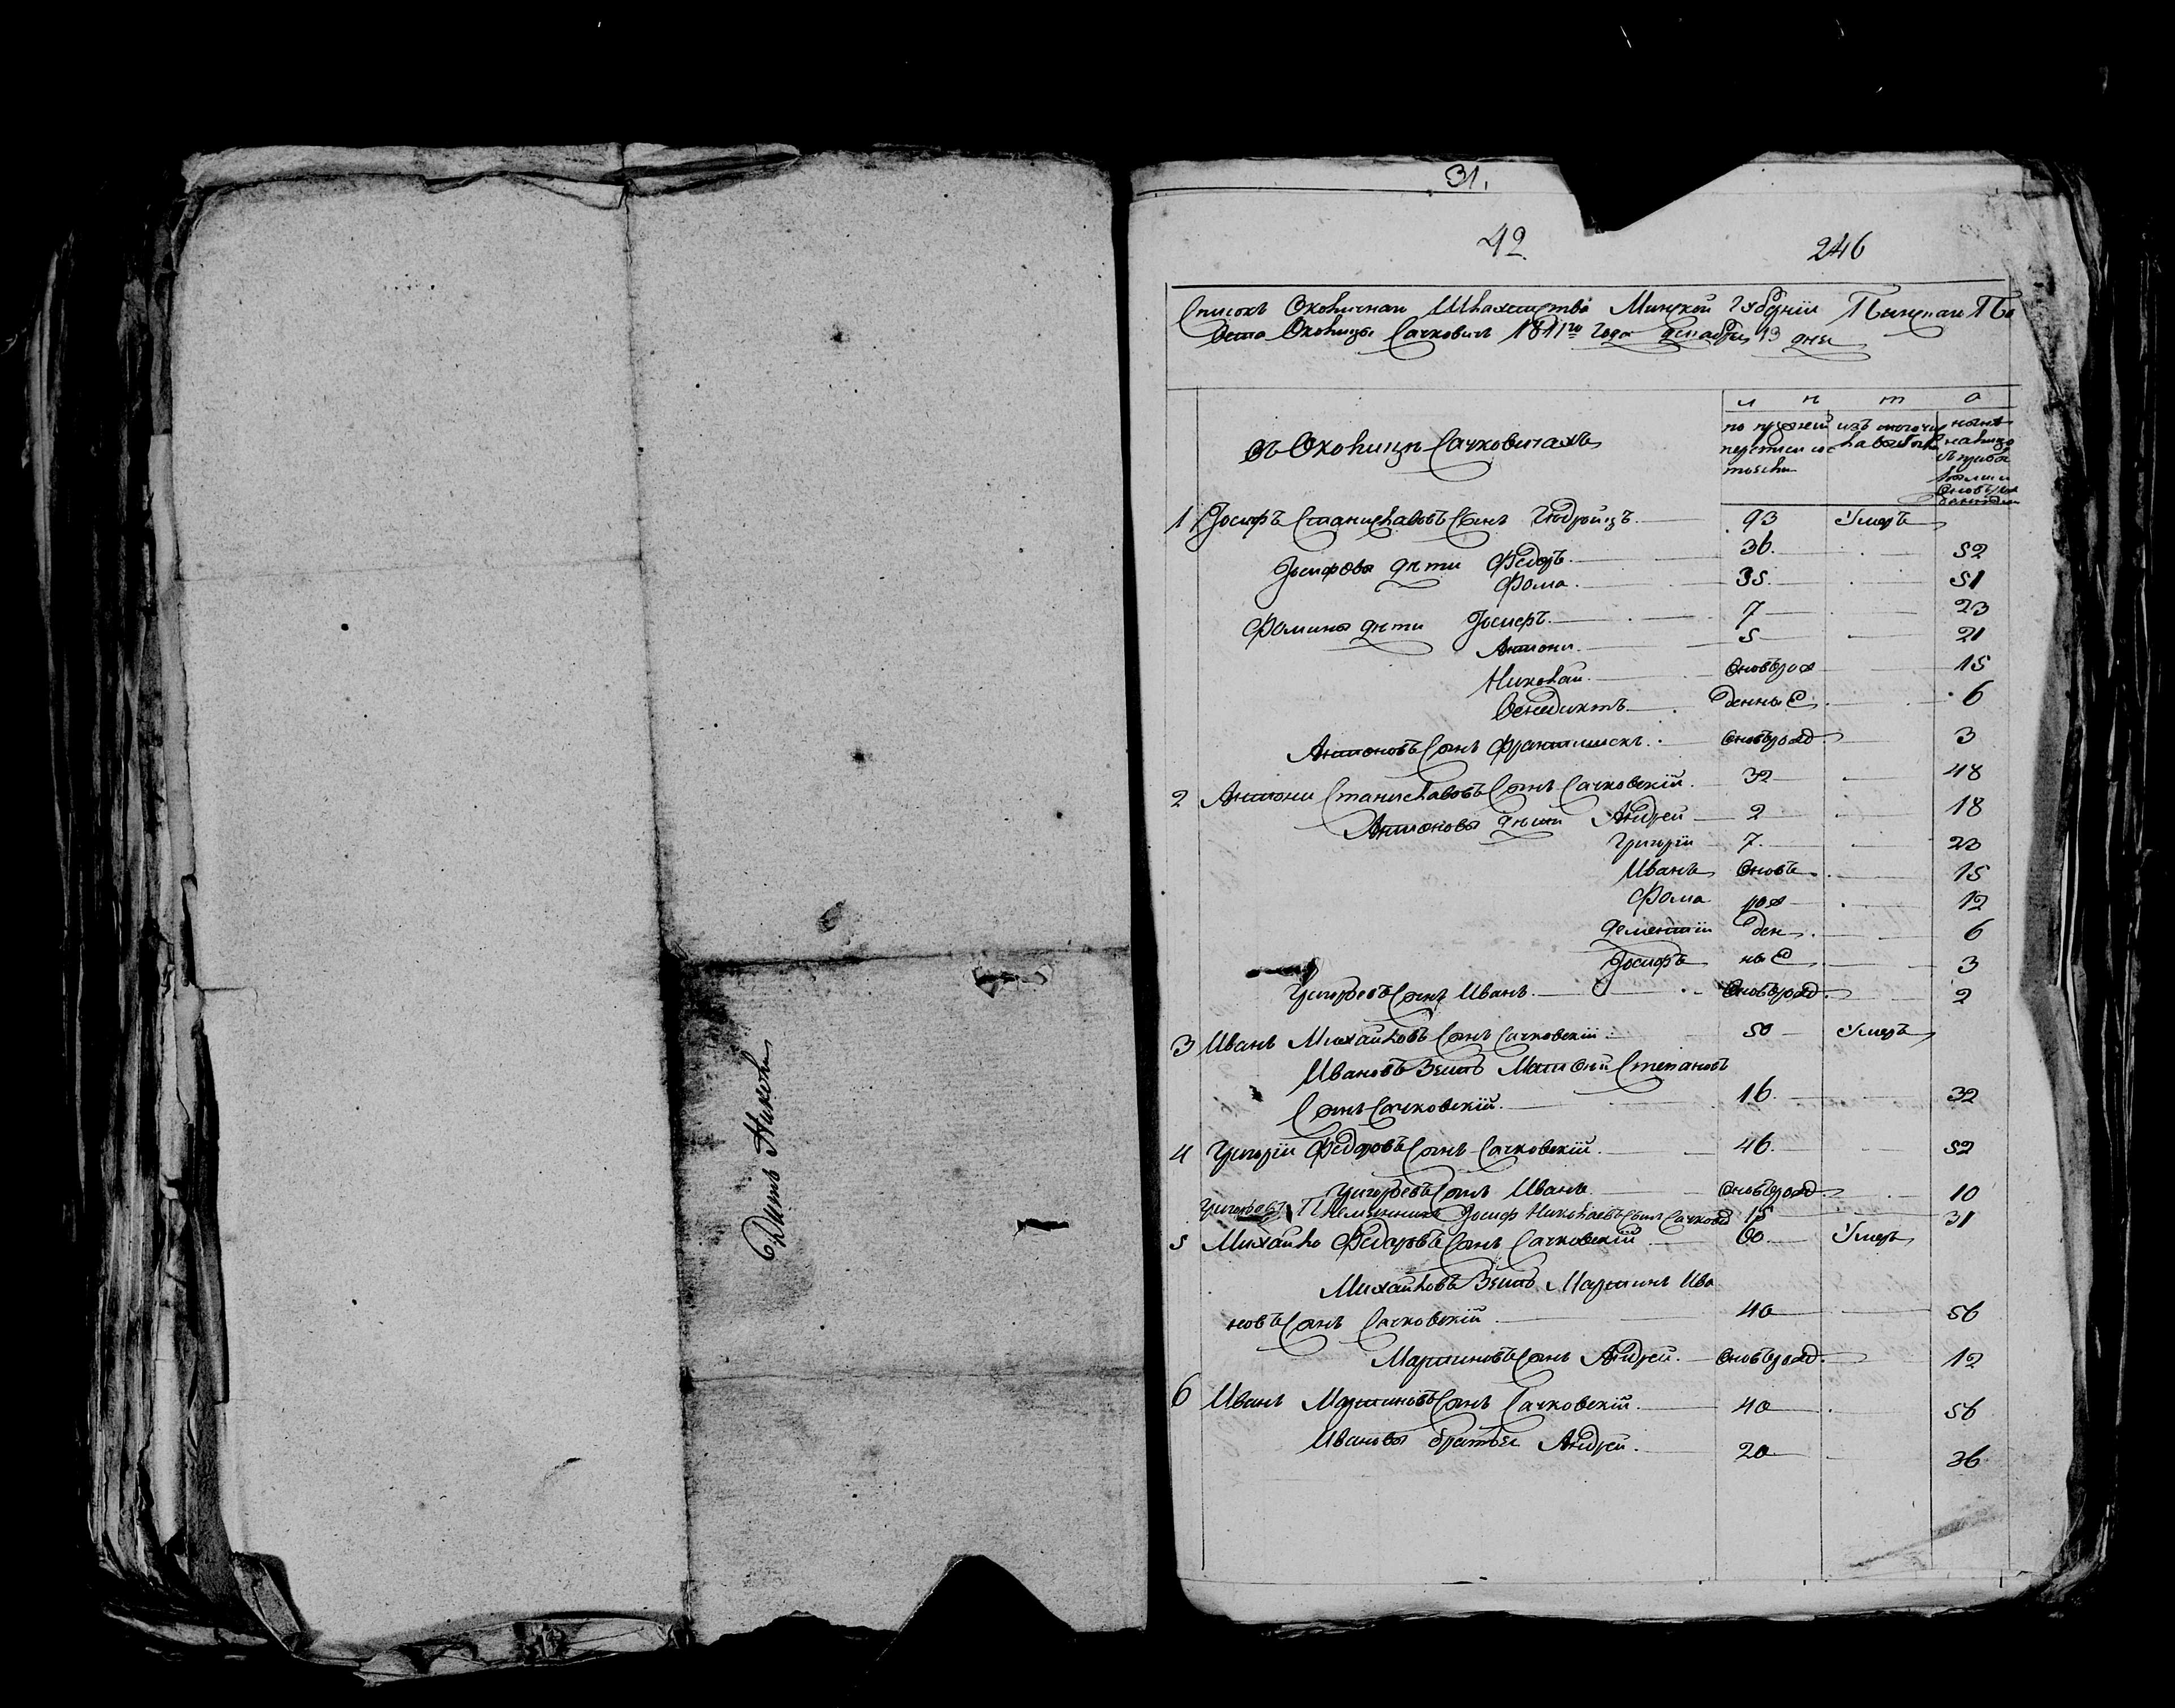 31.
42
246
Списокъ Околичнаи Шляхетства Минской Губерніи Пинскаи По
вета Околицы Сачковичъ 1811го Года декабря 13 дня
л ѣ т а
въ Околицѣ Сачковичахъ
по прежней переписи состояли
изъ того числа выбыло
нынѣ на лицо
1 Іосифъ Станиславовъ Сынъ Гедройцъ 93 Умеръ
Іосифовы дѣти Федоръ 36 52
Фома 35 51
Фомины дѣти Іосифъ 7 23
Антони 5 21
Николай вновьрож 15
Венедиктъ денные 6
Антоновъ Сынъ Францишекъ вновьрожд 3
2 Антони Станиславовъ Сынъ Сачковскій 32 48
Антоновы дѣти Андрей 2 18
Григорій 7 23
Иванъ вновь 15
Фома рож 12
Дементій ден 6
Іосифъ ные 3
Григорьевъ Сынъ Иванъ вновьрожд 2
3 Иванъ Михайловъ Сынъ Сачковскій 50 Умеръ
Ивановъ Зять Матфей Степановъ
Сынъ Сачковскій 16 32
4 Григорій Федоровъ Сынъ Сачковскій 46 52
Григорьевъ Сынъ Иванъ вновьрожд 10
Григорьевъ Племянникъ Іосиф Николаевъ Сынъ Сачковс 15 31
5 Михайло Федоровъ Сынъ Сачковскій 60 Умеръ
Михайловъ Зять Мартинъ Ива
новъ Сынъ Сачковскій 40 56
Мартиновъ Сынъ Андрей вновьрожд 12
6 Иванъ Мартиновъ Сынъ Сачковскій 40 56
Ивановы братья Андрей 20 36